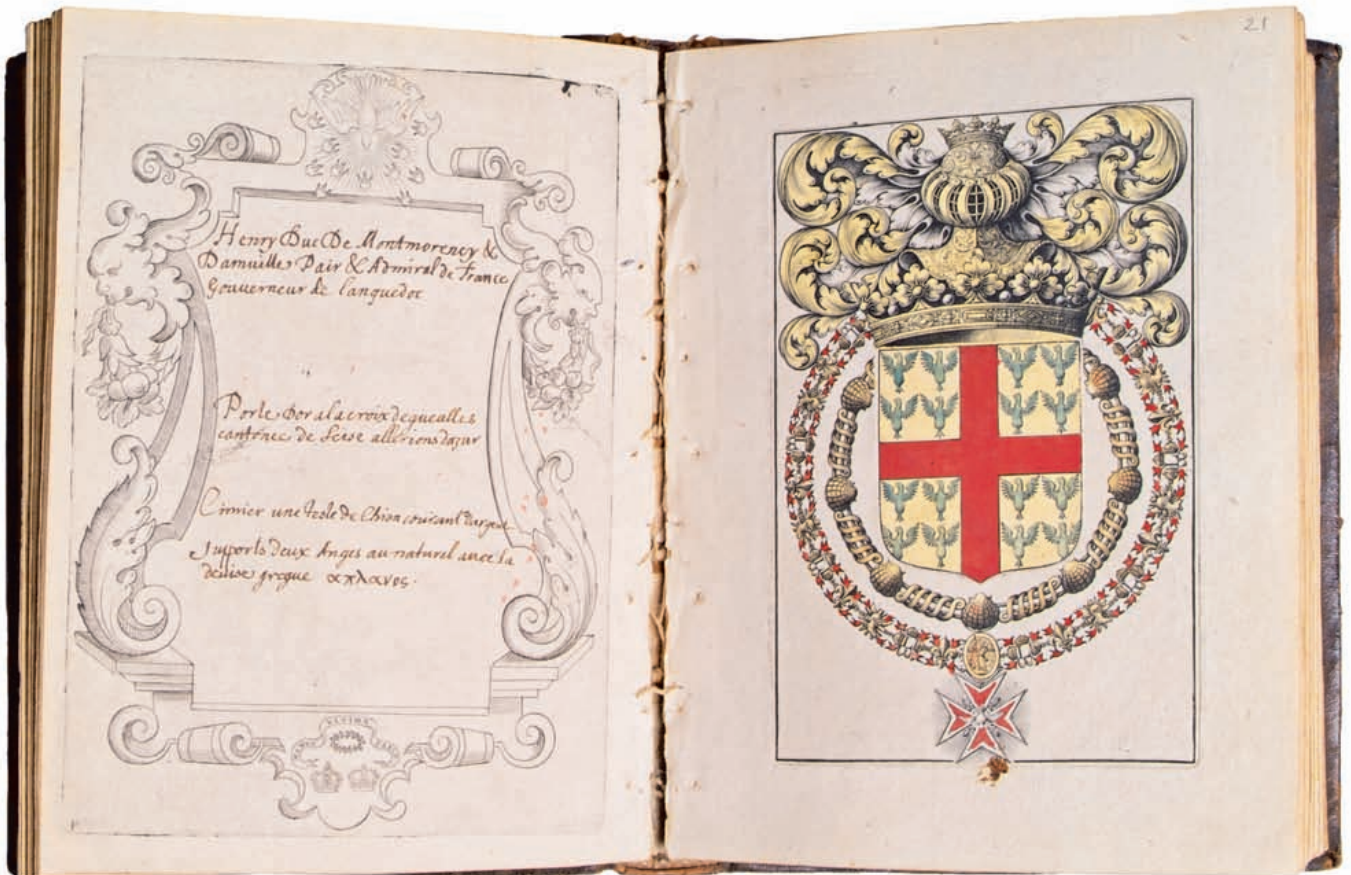 Henry Duc De Montmorency &
Damville Pair & Admiral de France
Gouverneur de languedoc
Porte Dor a la croix de guealles
cantonée de Seise allérions dazur
Cimier une teste de Chien courant dargent
Suports deux Anges au naturel avec sa
devise greque απλανος.
21